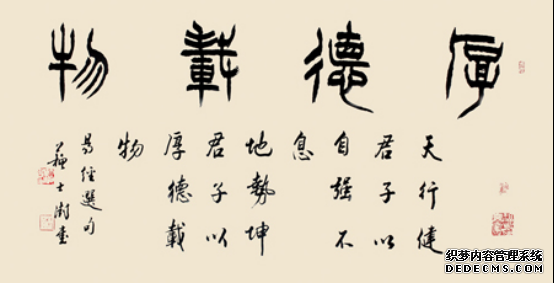 厚德載物
天行健
君子以
自强不
息
地勢坤
君子以
厚德載
物
易經選句
蘇士澍書
织梦内容管理系统
DEDECMS.COM